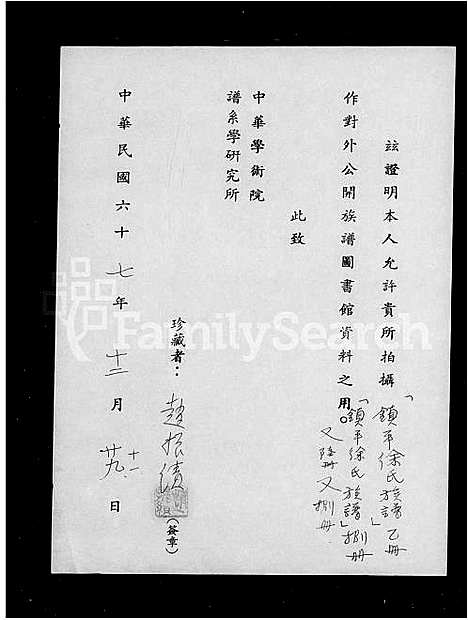 玆證明本人允許貴所拍攝「鎮平徐氏族譜」乙冊
「鎮平徐氏族譜」捌冊
又陸冊又捌冊.
作對外公開族譜圖書館資料之用。
此致
中華學術院
譜系學研究所
珍藏者：趙振績（簽章）
中華民國六十七年十二月廿九日
十一
FamilySearch